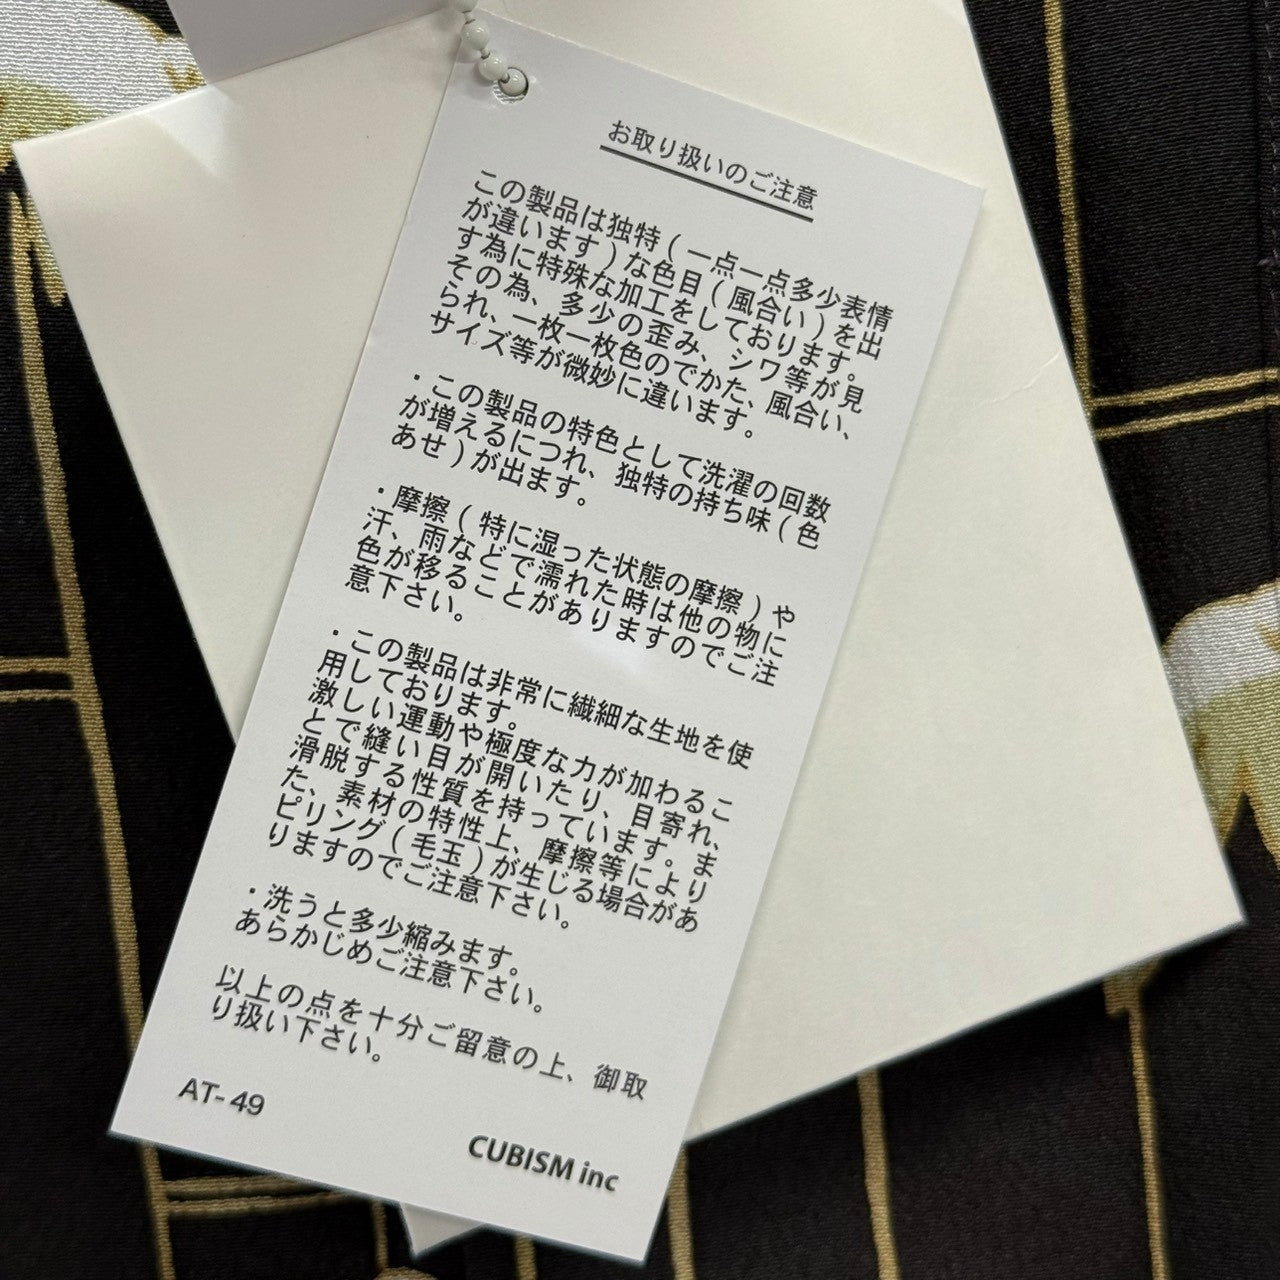 お取り扱いのご注意
この製品は独特(一点一点多少表情
が違います)な色目(風合い)を出
す為に特殊な加工をしております。
その為、多少の歪み、シワ等が見
られ、一枚一枚色のでかた、風合い、
サイズ等が微妙に違います。
・この製品の特色として洗濯の回数
が増えるにつれ、独特の持ち味(色
あせ)が出ます。
・摩擦(特に湿った状態の摩擦)や
汗、雨などで濡れた時は他の物に
色が移ることがありますのでご注
意下さい。
・この製品は非常に繊細な生地を使
用しております。
激しい運動や極度な力が加わるこ
とで縫い目が開いたり、目寄れ、
滑脱する性質を持っています。ま
た、素材の特性上、摩擦等により
ピリング(毛玉)が生じる場合があ
りますのでご注意下さい。
・洗うと多少縮みます。
あらかじめご注意下さい。
以上の点を十分ご留意の上、御取
り扱い下さい。
AT-49
CUBISM inc